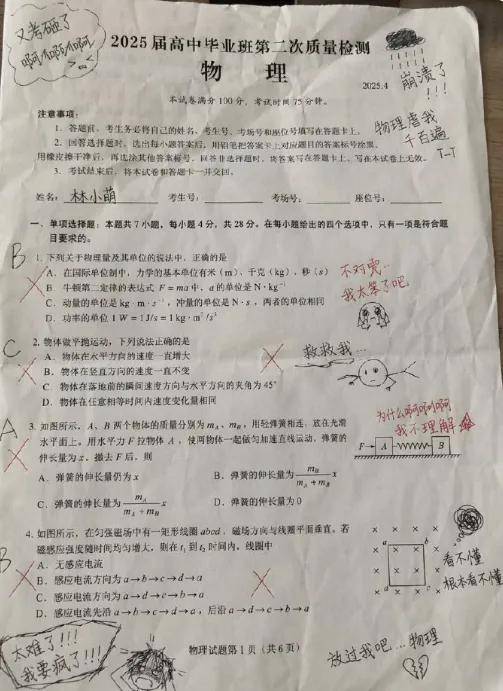 又考砸了
啊啊啊啊
2025届高中毕业班第二次质量检测
物 理
2025.4
崩溃了
!!!
本试卷满分100分，考试时间75分钟。
物理虐我
千百遍
T-T
注意事项：
1. 答题前，考生务必将自己的姓名、考生号、考场号和座位号填写在答题卡上。
2. 回答选择题时，选出每小题答案后，用铅笔把答案卡上对应题目的答案标号涂黑。
用橡皮擦干净后，再选涂其他答案标号。回答非选择题时，将答案写在答题卡上。写在本试卷上无效。
3. 考试结束后，将本试卷和答题卡一并交回。
姓名： 林小萌 考生号： 考场号： 座位号：
一、单项选择题：本题共7小题，每小题4分，共28分。在每小题给出的四个选项中，只有一项是符合题
目要求的。
B
1. 下列关于物理量及其单位的说法中，正确的是
A. 在国际单位制中，力学的基本单位有米（m）、千克（kg）、秒（s）
B. 牛顿第二定律的表达式 F = ma 中，a 的单位是 N · kg⁻¹
C. 动量的单位是 kg · m · s⁻¹，冲量的单位是 N · s，两者的单位相同
D. 功率的单位 1 W = 1 J/s = 1 kg · m²/s³
不对呢…
我太笨了吧
C
2. 物体做平抛运动，下列说法正确的是
A. 物体在水平方向的速度一直增大
B. 物体在竖直方向的速度一直不变
C. 物体在落地前的瞬间速度方向与水平方向的夹角为45°
D. 物体在任意相等时间内速度变化量相同
救救我…
A
3. 如图所示，A、B 两个物体的质量分别为 mA、mB，用轻弹簧相连，放在光滑
水平面上。用水平力 F 拉物体 A，使两物体一起做匀加速直线运动，弹簧的
伸长量为 x。撤去 F 后，则
A. 弹簧的伸长量仍为 x
B. 弹簧的伸长量为 mB/(mA + mB) x
C. 弹簧的伸长量为 mA/(mA + mB) x
D. 弹簧的伸长量为 0
为什么啊啊啊啊
我不理解
F A B
B
4. 如图所示，在匀强磁场中有一矩形线圈 abcd，磁场方向与线圈平面垂直。若
磁感应强度随时间均匀增大，则在 t₁ 到 t₂ 时间内，线圈中
A. 无感应电流
B. 感应电流方向为 a→b→c→d→a
C. 感应电流方向为 a→d→c→b→a
D. 感应电流先沿 a→b→c→d→a，后沿 a→d→c→b→a
a b
d c
看不懂
根本看不懂
太难了!!!
我要疯了!!!
物理试题第1页（共6页）
放过我吧…物理